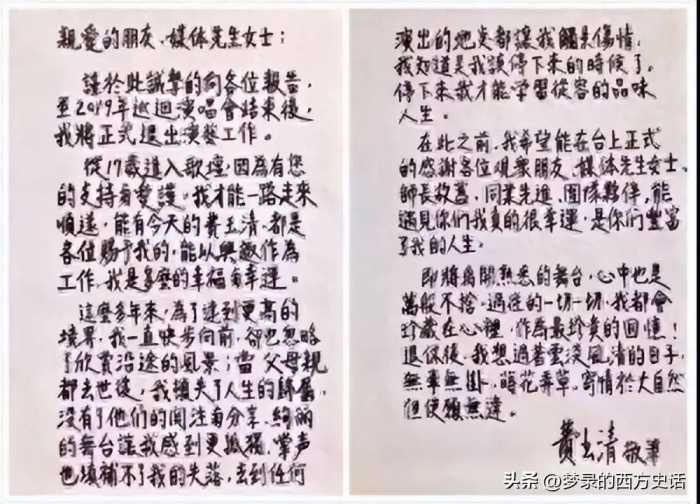 親愛的朋友、媒体先生女士：
謹於此誠摯的向各位報告，
至2019年巡迴演唱會結束後，
我將正式退出演藝工作。
從17歲進入歌壇，因為有您
的支持與愛護，我才能一路走來
順遂，能有今天的費玉清，都是
各位賜予我的，能以興趣作為
工作，我是多麼的幸福與幸運。
這麼多年來，為了達到更高的
境界，我一直快步向前，卻也忽略
了欣賞沿途的風景；當父母親
都去世後，我頓失了人生的歸屬，
沒有了他們的關注與分享，絢麗
的舞台讓我感到更孤獨，掌声
也填補不了我的失落，去到任何
演出的地点都讓我觸景傷情，
我知道是我該停下來的時候了，
停下來我才能學習從容的品味
人生。
在此之前，我希望能在台上正式
的感謝各位觀眾朋友、媒体先生女士、
師長故舊、同業先進、團隊夥伴，能
遇見你們我真的很幸運，是你們豐富
了我的人生。
即將離開熟悉的舞台，心中也是
萬般不捨，過往的一切一切，我都會
珍藏在心裡，作為最珍貴的回憶！
退休後，我想過著雲淡風清的日子，
無牽無掛，蒔花弄草。寄情於大自然
但使願無違。
費玉清 敬筆
头条 @梦录的西方史话